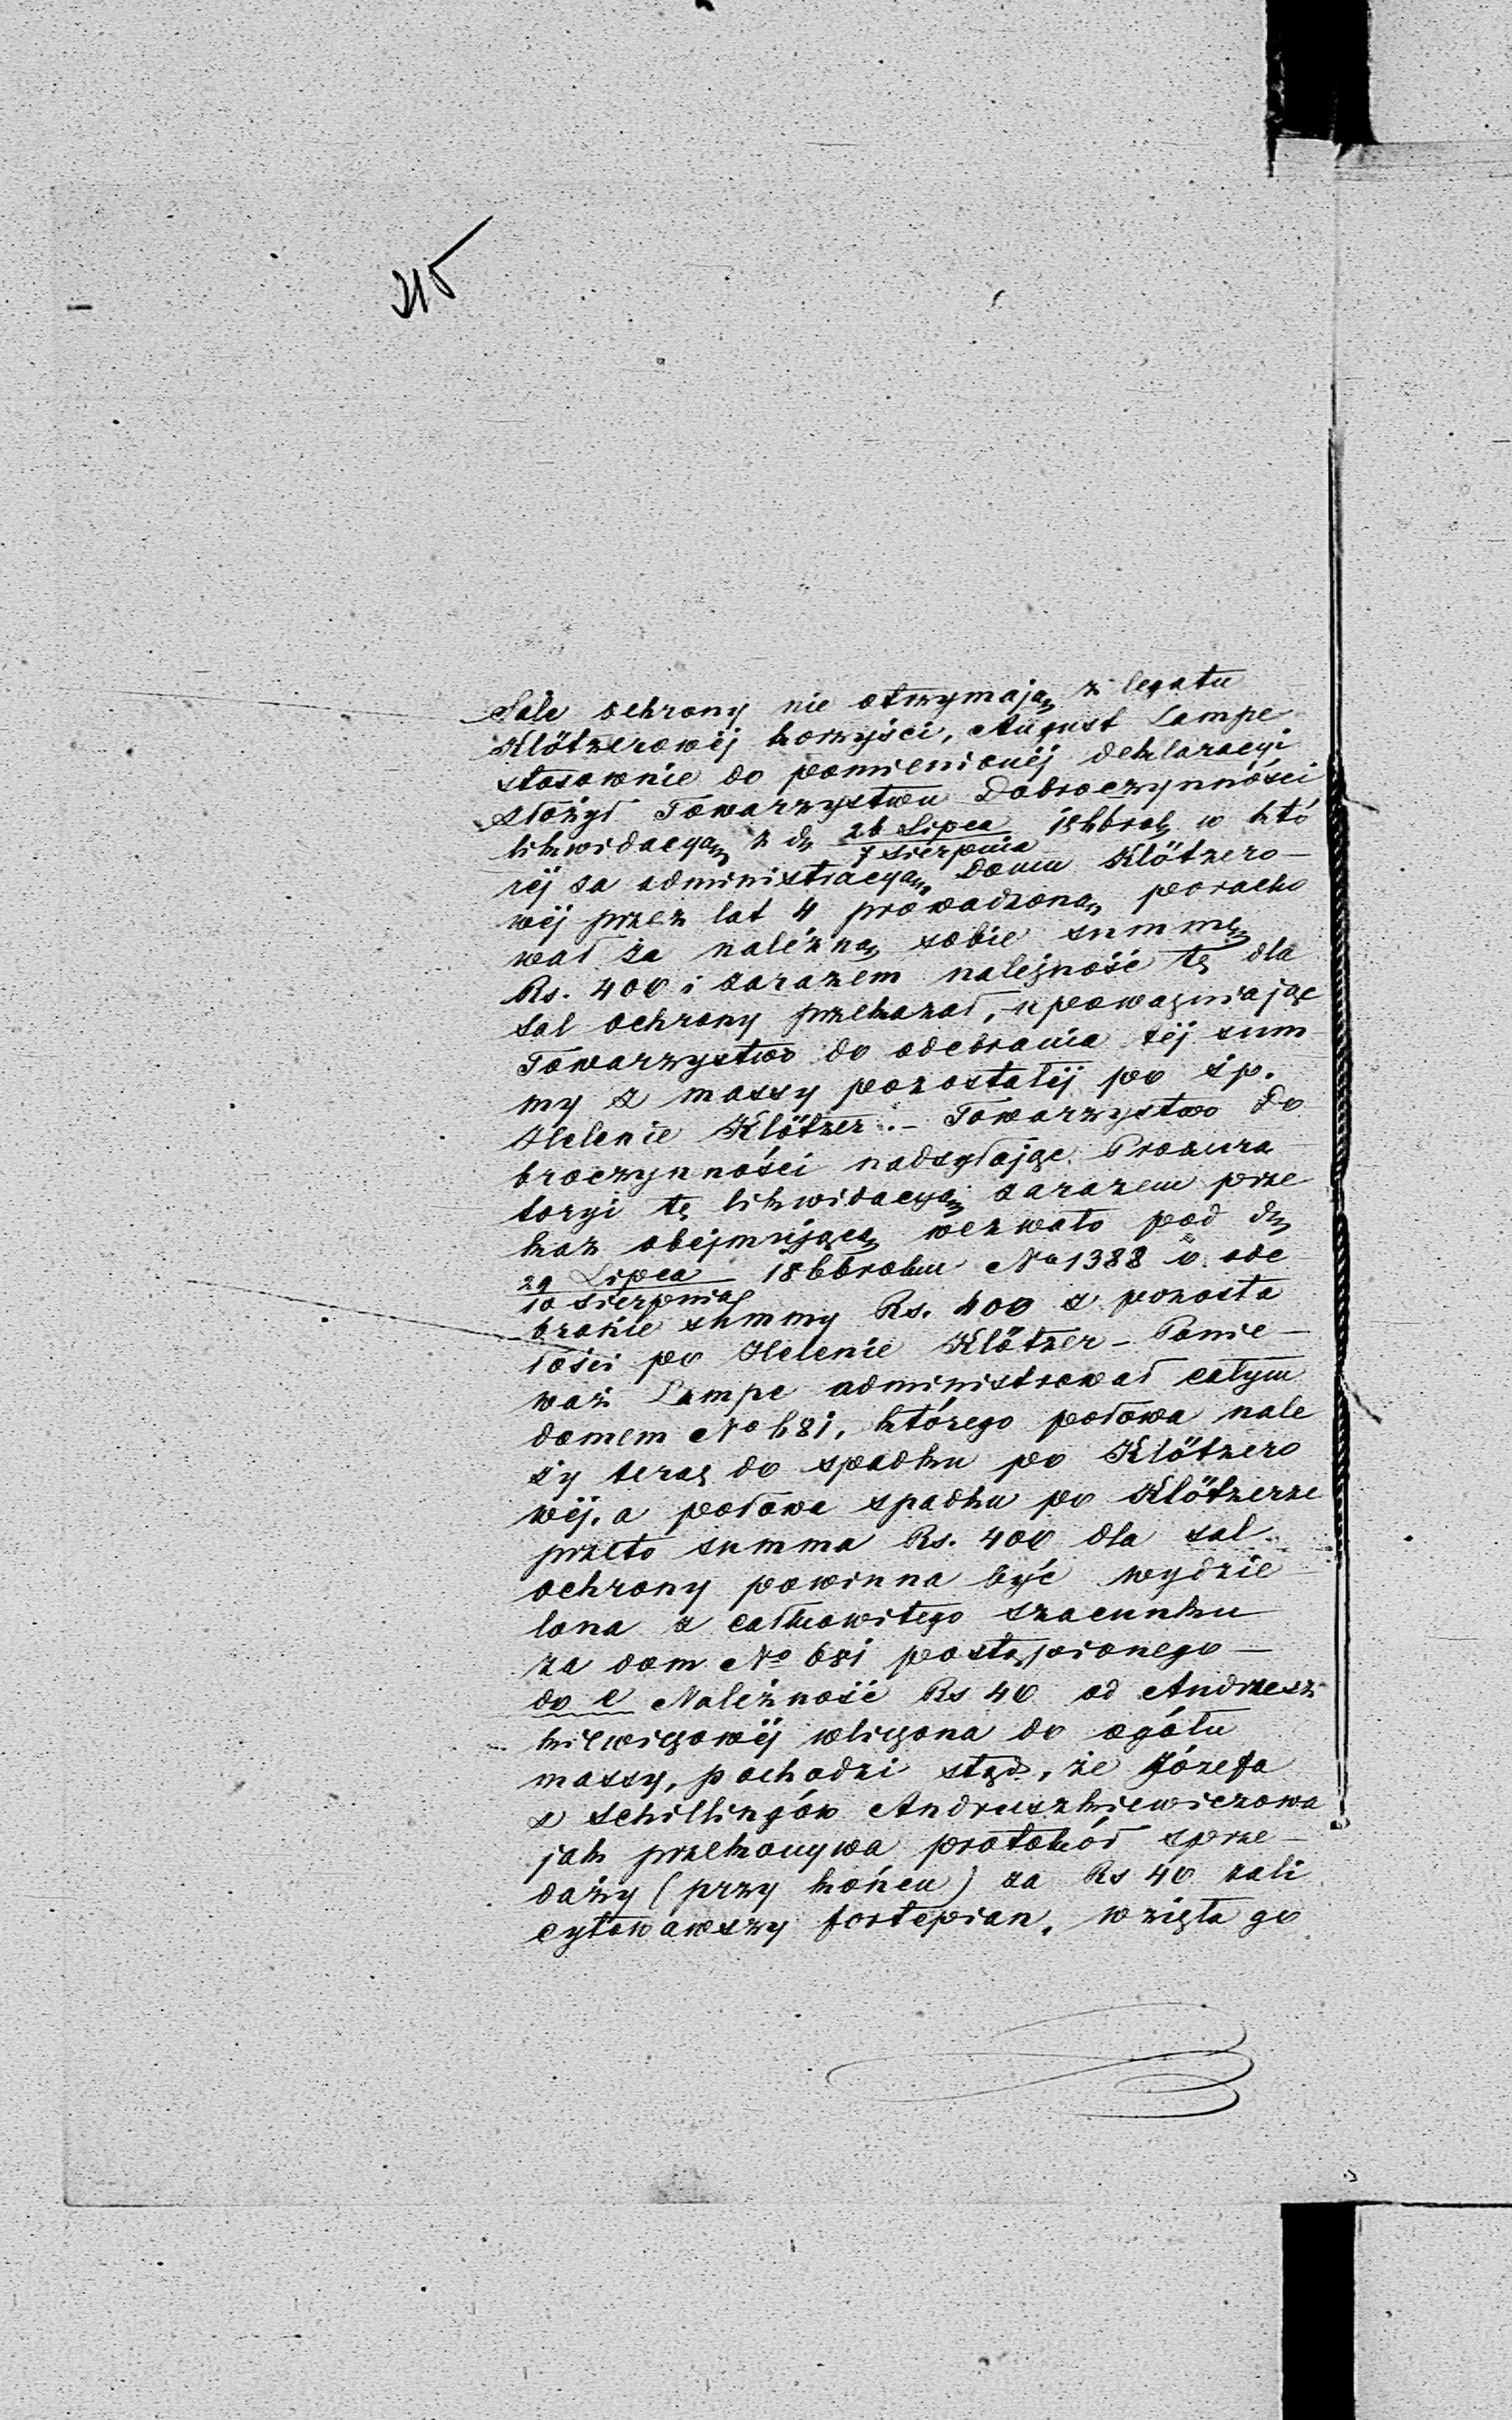 215
Sale ochrony nie otrzymają z legatu
Klötzerowéj korzyści, August Lampe
stosownie do pomienionéj deklaracyi
złożył Towarzystwu Dobroczynności
likwidacyą z d. 26 Lipca / 7 Sierpnia 1866 rok, w któ
réj za administracyą Domu Klötzero-
wéj przez lat 4 prowadzoną poracho
wał za należną sobie summę
Rs. 400 i zarazem należność tę dla
sal ochrony przekazał, upoważniając
Towarzystwo do odebrania téj sum
my z massy pozostałéj po śp.
Helenie Klötzer. - Towarzystwo Do
broczynności nadsyłając Prokura
toryi tę likwidacyą zarazem prze
kaz obejmującą wezwało pod d.
29 Lipca / 10 Sierpnia 1866 roku No 1388 o ode
branie summy Rs. 400 z pozosta
łości po Helenie Klötzer - Ponie-
waż Lampe administrował całym
domem No 681, którego połowa nale
ży teraz do spadku po Klötzero
wéj, a połowa spadku po Klötzerze
przeto summa Rs. 400 dla sal
ochrony powinna być wydzie
lona z całkowitego szacunku
za dom No 681 postąpionego -
do e Należność Rs 40 od Andrusz
kiewiczowéj wliczona do ogółu
massy, pochodzi stąd, że Józefa
z Schillingów Andruszkiewiczowa
jak przekonywa protokół sprze-
daży (przy końcu) za Rs 40 zali
cytowawszy fortepian, wzięła go